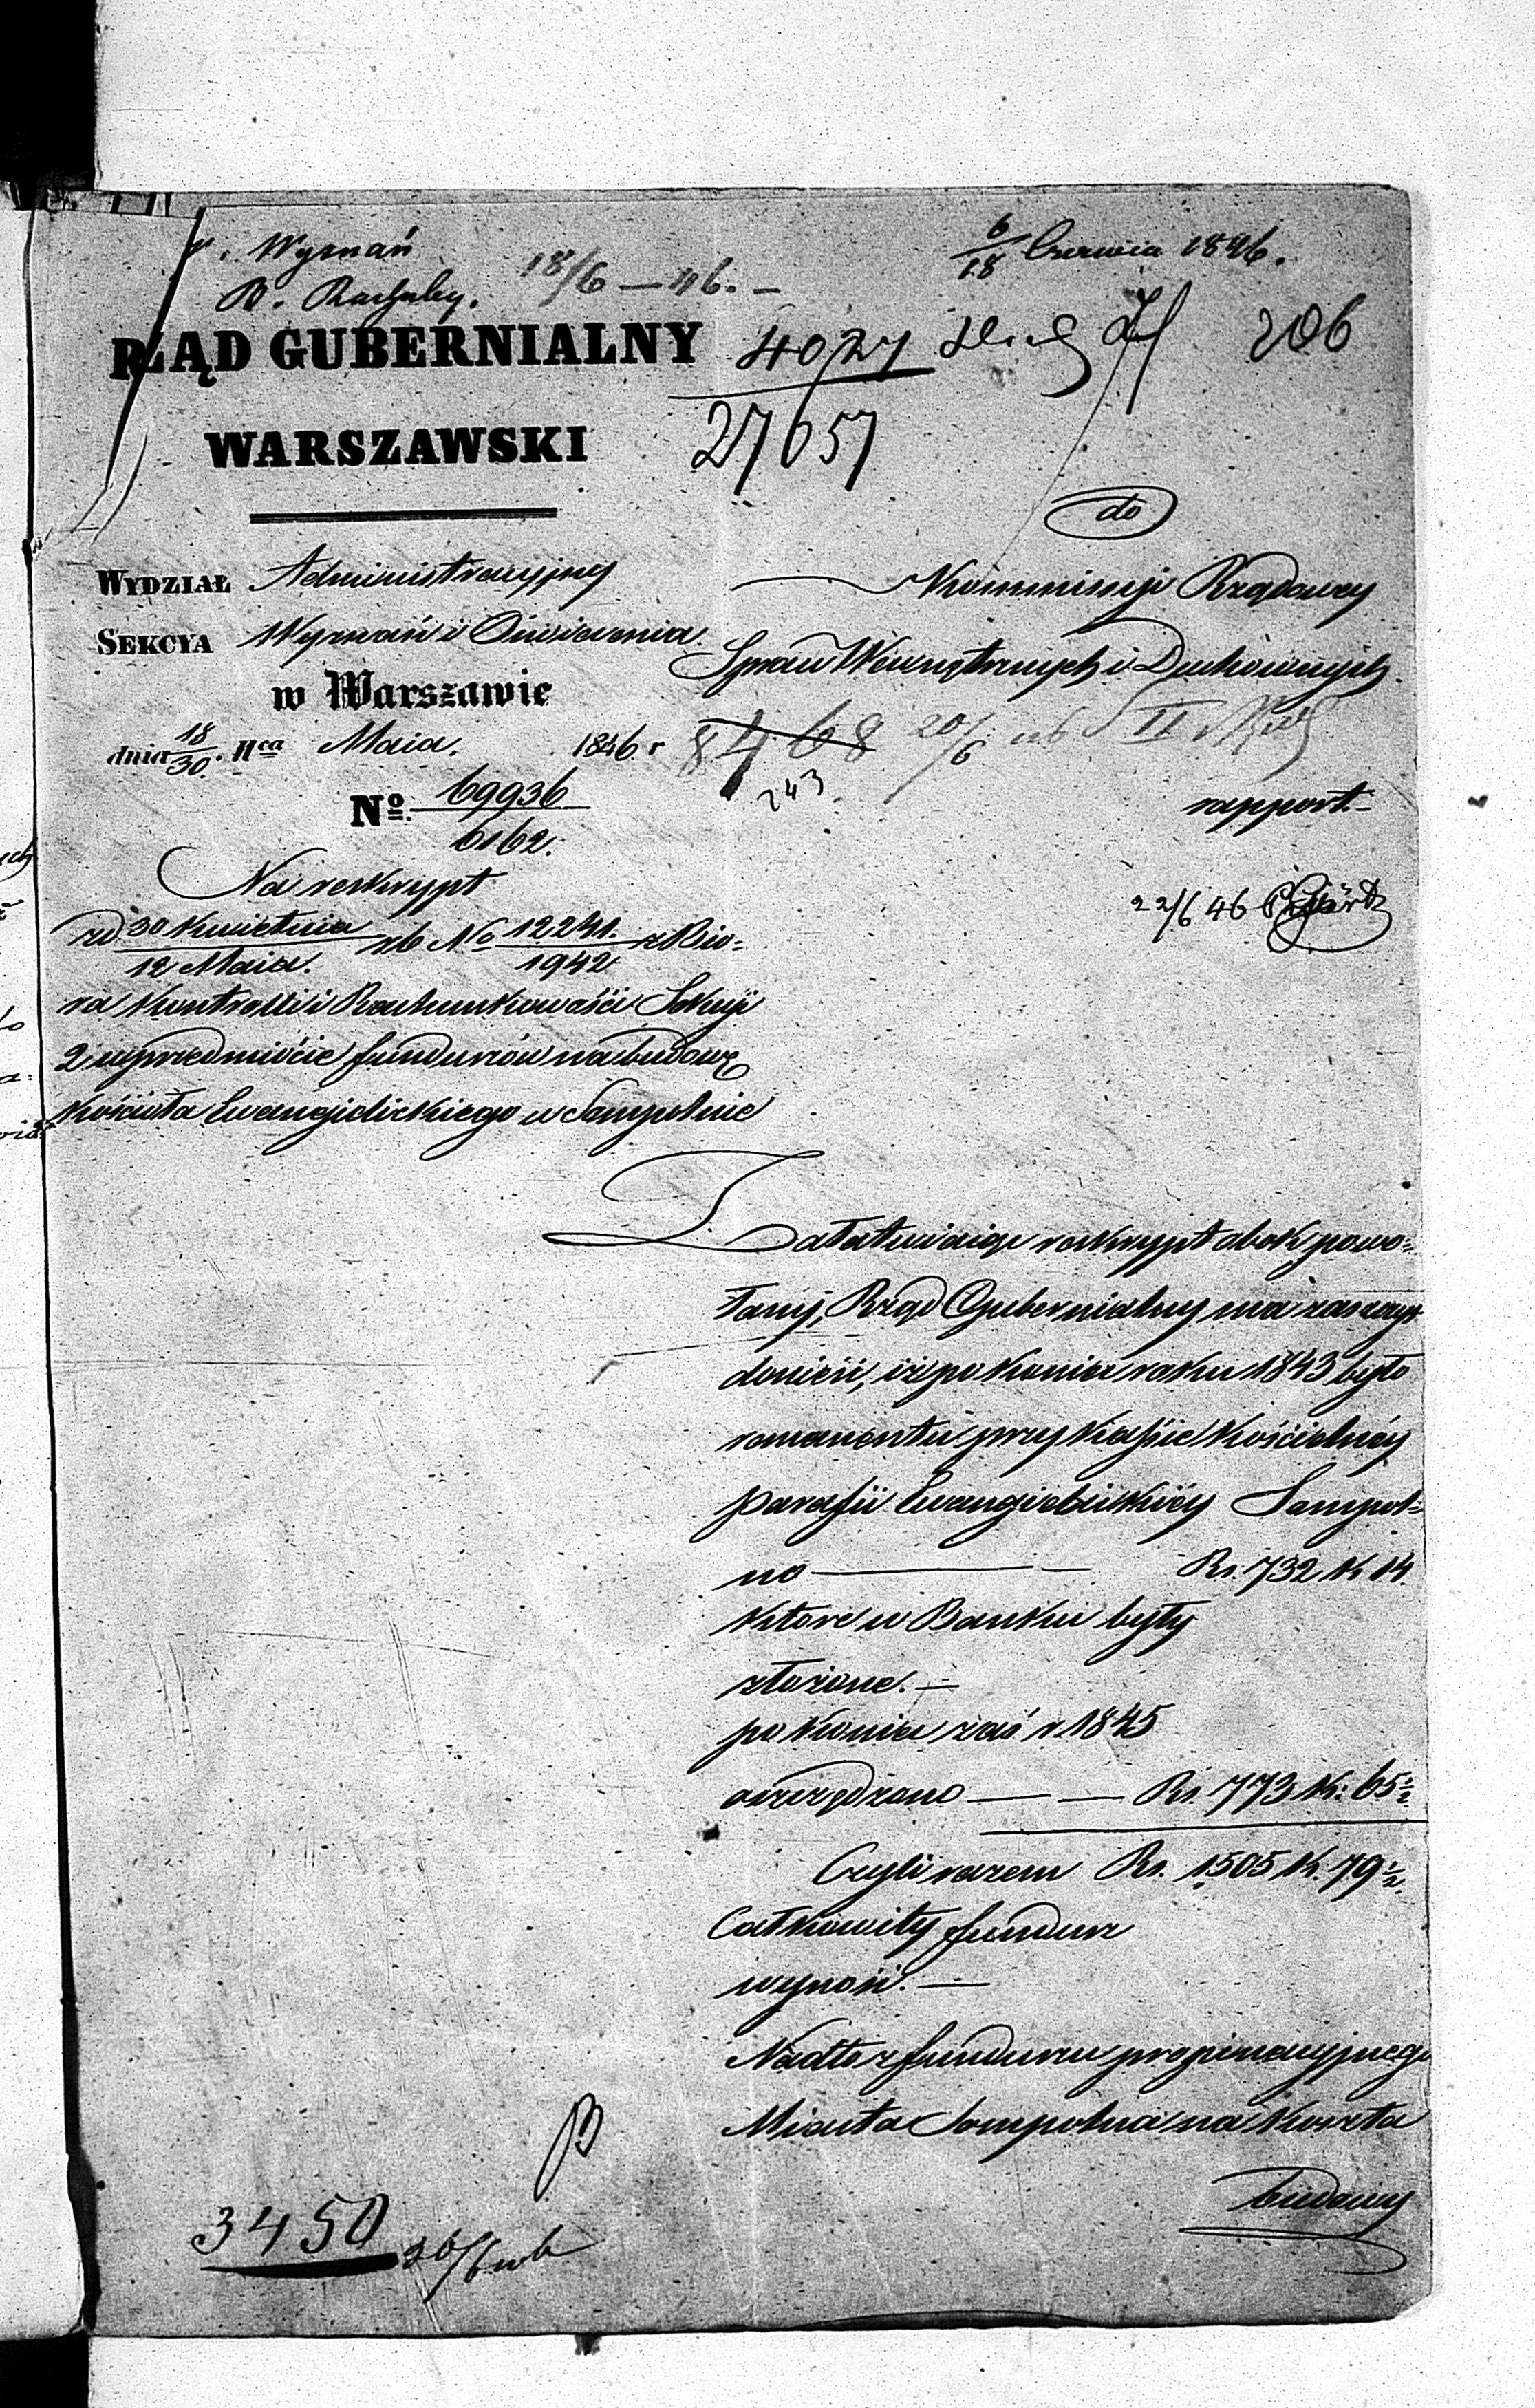 Wyznań
6/18 Czerwca 1846.
R. Rachuby.
18/6 — 46. —
RZĄD GUBERNIALNY
4027
206
WARSZAWSKI
27657
do
WYDZIAŁ Administracyjny
Kommissyi Rządowey
SEKCYA Wyznań i Oświecenia
Spraw Wewnętrznych i Duchownych.
w Warszawie
dnia 18/30. Mca Maia. 1846 r
8468 20/6
243
No. 69936/6162.
rapport.
Na reskrypt
22/6 46
zd 30 Kwietnia/12 Maia. No 12241./1942 z Biu-
ra Kontrolli i Rachunkowości Sekcyi
2 w przedmiocie funduszów na budowę
Kościoła Ewangielickiego w Sompolnie
Załatwiaiąc reskrypt obok powo-
łany, Rząd Gubernialny ma zaszczyt
donieść, iż po koniec roku 1843 było
remanentu przy Kassie Kościelnéy
Parafii Ewangielickiéy Sompol-
no — Rs. 732 K 14.
które w Banku były
złożone. —
po koniec zaś r. 1845
oszczędzono — — Rs. 773 K: 65 1/2
Czyli razem Rs. 1505 K. 79 1/2.
Całkowity fundusz
wynosi. —
Nadto z funduszu propinacyjnego
Miasta Sompolna na koszta
budowy
3450